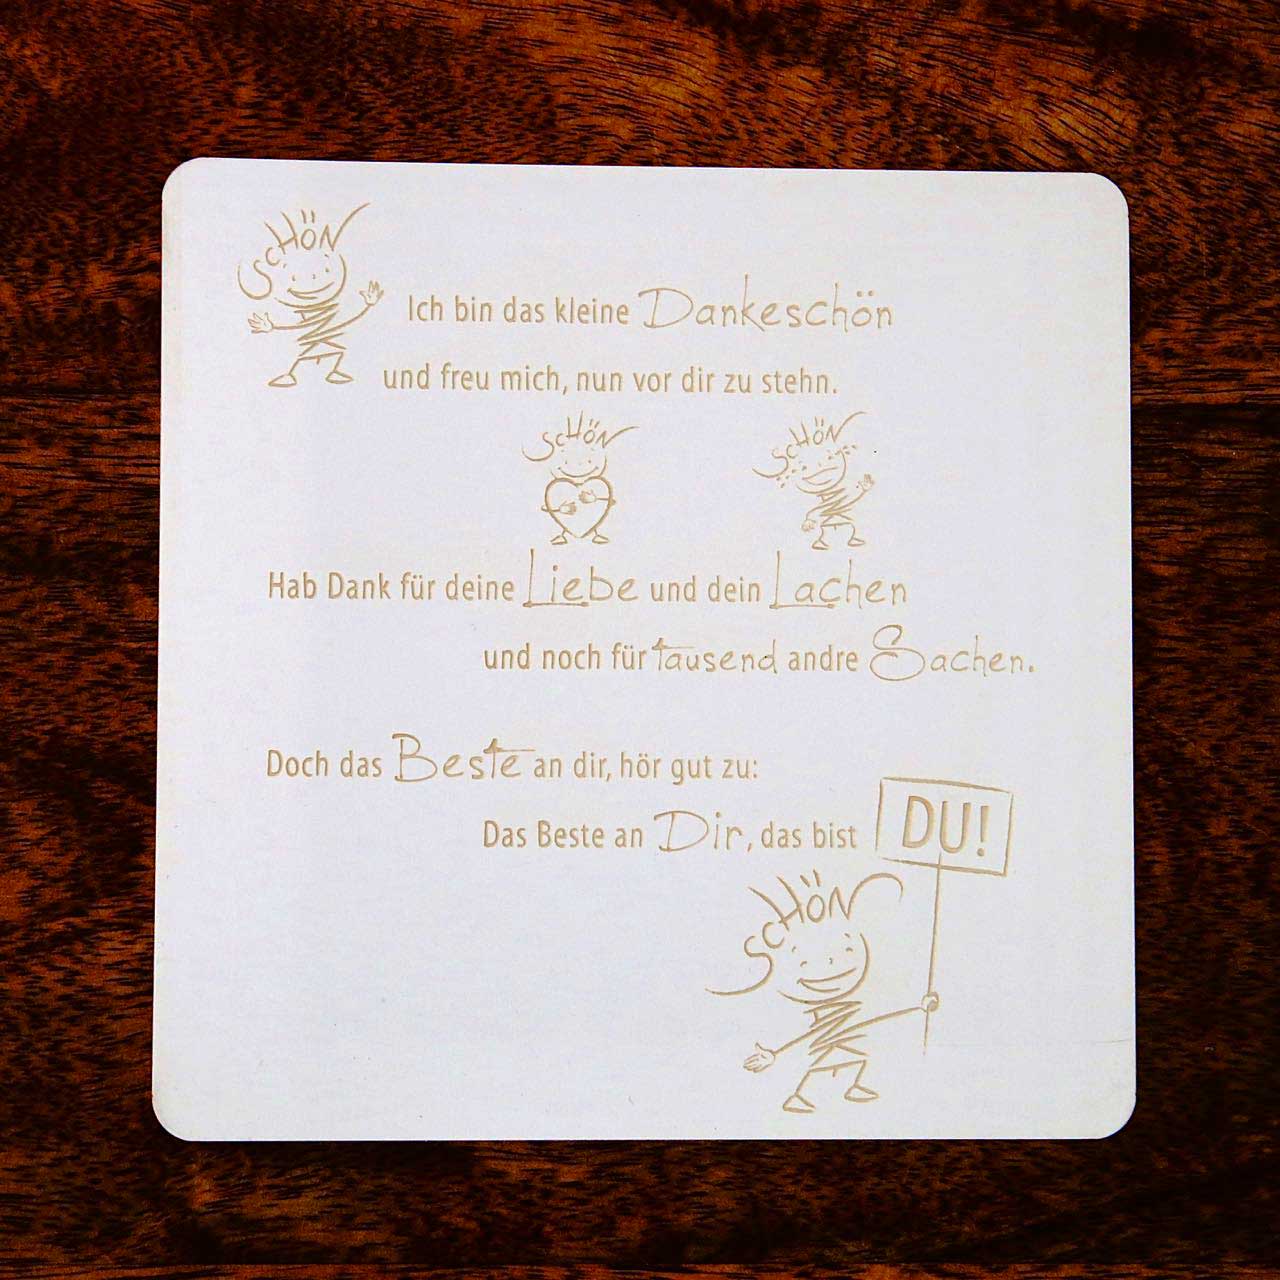 SCHÖN
DANKE
Ich bin das kleine Dankeschön
und freu mich, nun vor dir zu stehn.
SCHÖN
SCHÖN
DANKE
Hab Dank für deine Liebe und dein Lachen
und noch für tausend andre Sachen.
Doch das Beste an dir, hör gut zu:
Das Beste an Dir, das bist DU!
SCHÖN
DANKE